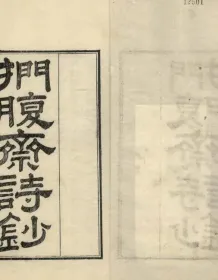 捫腹齋詩鈔